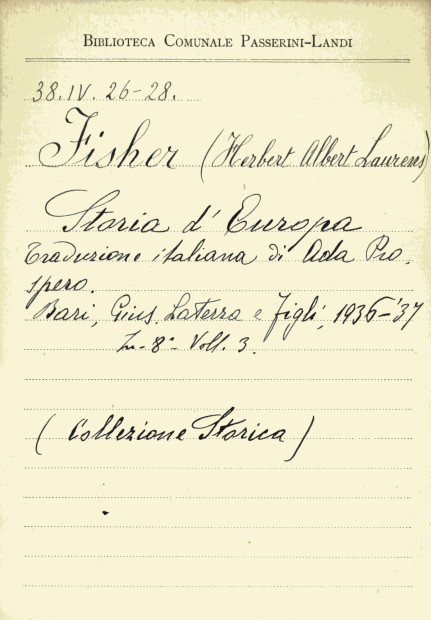 BIBLIOTECA COMUNALE PASSERINI-LANDI
38.IV. 26-28.
Fisher (Herbert Albert Laurens)
Storia d'Europa
Traduzione italiana di Ada Pro.
spero.
Bari, Gius. Laterza e Figli, 1936-'37
In-8°- Voll. 3.
(Collezione Storica)